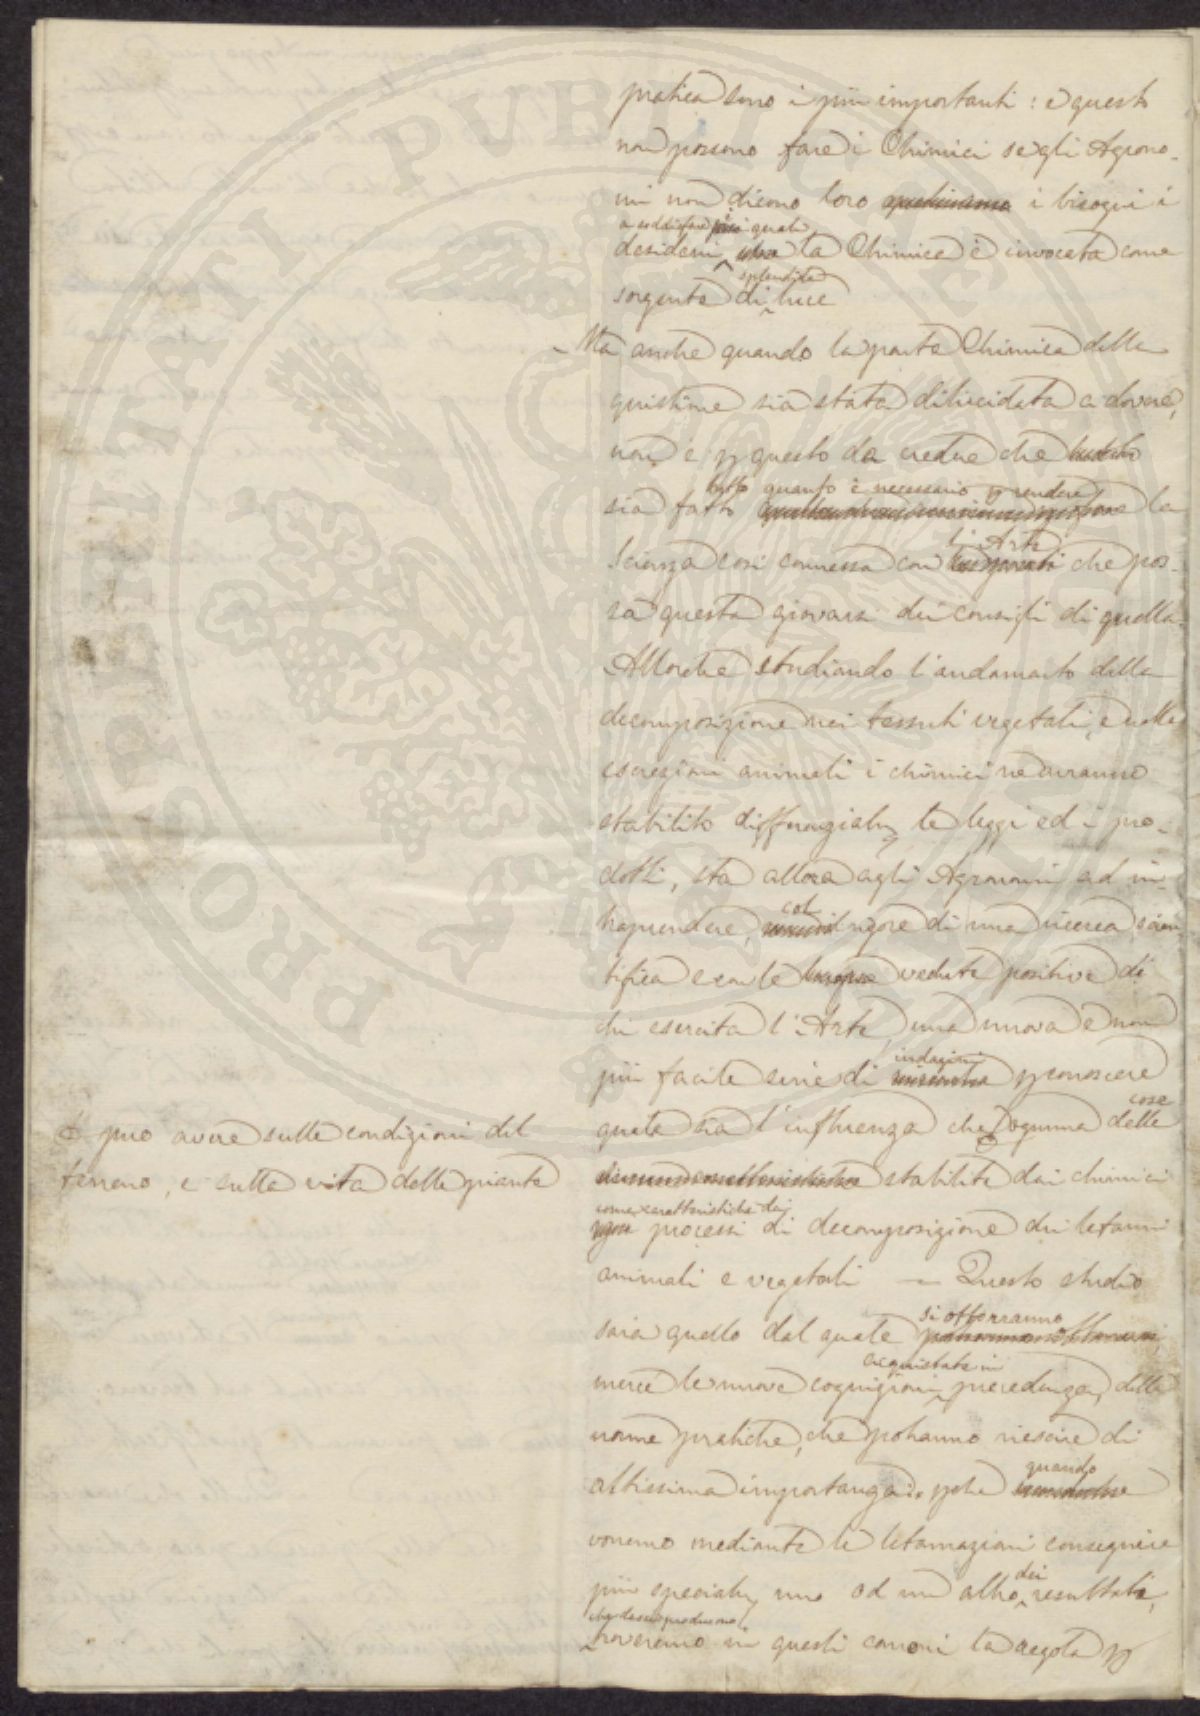 pratica sono i più importanti: e questo
non possono fare i Chimici se gli Agrono-
mi non dicono loro i bisogni i
a soddisfare i quali
desiderii la Chimica è invocata come
splendida
sorgente di luce
- Ma anche quando la parte Chimica della
quistione sia stata dilucidata a dovere,
non è p questo da credere che
tutto quanto è necessario p rendere
sia fatto la
l'Arte
Scienza così connessa con che pos-
sa questa giovarsi dei consigli di quella.
Allorche studiando l'andamento della
decomposizione nei tessuti vegetali, e nelle
escrezioni animali i chimici ne avranno
stabilito le leggi ed i pro-
dotti, sta allora agli Agronomi ad in-
col
traprendere, rigore di una ricerca scien
tifica e con le vedute positive di
chi esercita l'Arte, una nuova e non
indagini
più facile serie di p conoscere
cose
quale sia l'influenza che ognuna delle
può avere sulle condizioni del
terreno, e sulla vita delle piante
stabilite dai chimici
come caratteristiche dei
processi di decomposizione dei letami
animali e vegetali — Questo studio
si otterranno
sarà quello dal quale
acquistate in
mercè le nuove cognizioni precedenza, delle
norme pratiche, che potranno riescire di
quando
altissima importanza: pche
vorremo mediante le letamazioni conseguire
dei
più specialm uno od un altro resultati,
che desse producono
troveremo in questi canoni la regola p